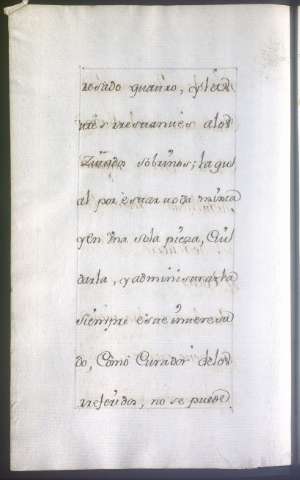 resado quarto, y las
tres restantes a los
dos sobrinos; la qu
al por estar toda unida
y en una sola pieza, cui
darla, y administrarla
siempre este interesa
do, como Curador de los
referidos, no se puede